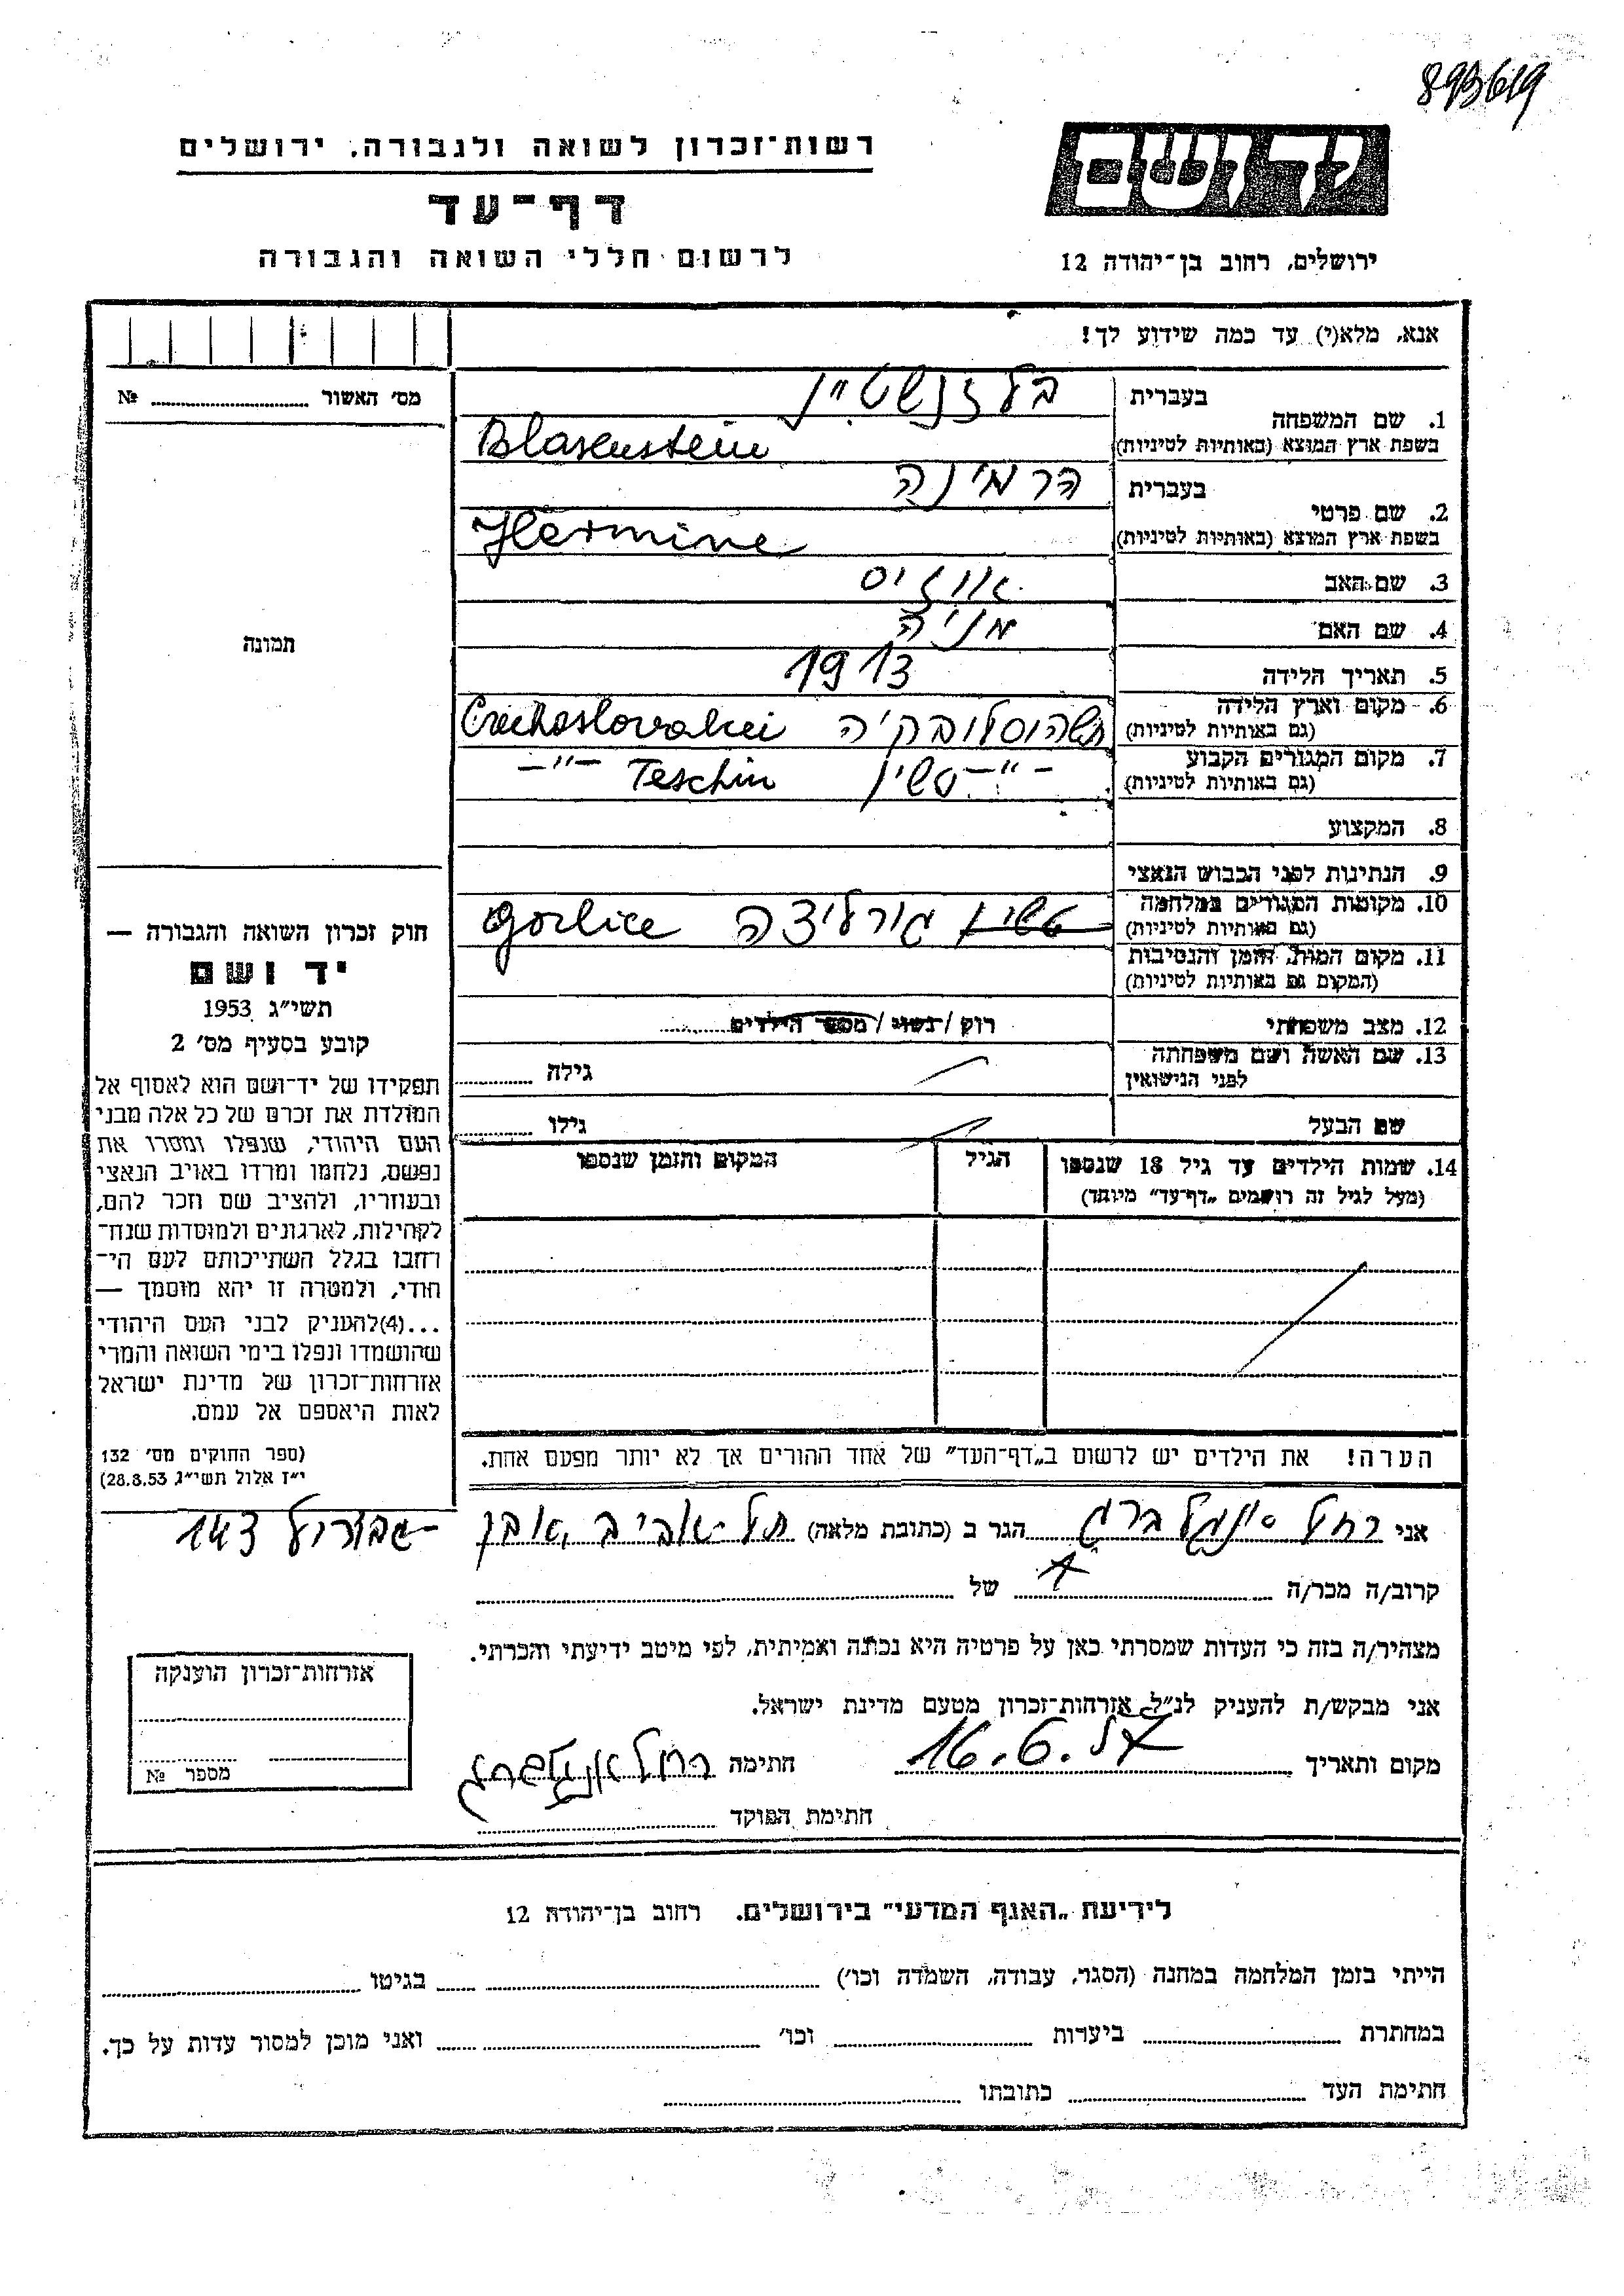 893619
יד ושם
ירושלים, רחוב בן־יהודה 12
רשות־זכרון לשואה ולגבורה, ירושלים
דף־עד
לרשום חללי השואה והגבורה
אנא, מלא(י) עד כמה שידוע לך!
מס׳ האשור № 
1. שם המשפחה
בעברית בלזנשטיין
בשפת ארץ המוצא (באותיות לטיניות) Blasenstein
2. שם פרטי
בעברית הרמינה
בשפת ארץ המוצא (באותיות לטיניות) Hermine
3. שם האב
4. שם האם מניה
5. תאריך הלידה 1913
6. מקום וארץ הלידה
(גם באותיות לטיניות) Czechoslovakei
7. מקום המגורים הקבוע
(גם באותיות לטיניות) –"– טשין Teschin –"–
8. המקצוע
9. הנתינות לפני הכבוש הנאצי
10. מקומות המגורים במלחמה
(גם באותיות לטיניות) טשין גורליצה Gorlice
11. מקום המות, הזמן והנסיבות
(המקום גם באותיות לטיניות)
12. מצב משפחתי רוק / נשוי / מספר הילדים
13. שם האשה ושם משפחתה
לפני הנישואין גילה
שם הבעל גילו
14. שמות הילדים עד גיל 18 שנספו הגיל המקום והזמן שנספו
(מעל לגיל זה רושמים „דף־עד״ מיוחד)
הערה! את הילדים יש לרשום ב„דף־העד״ של אחד ההורים אך לא יותר מפעם אחת.
תמונה
חוק זכרון השואה והגבורה —
יד ושם
תשי״ג 1953
קובע בסעיף מס׳ 2
תפקידו של יד־ושם הוא לאסוף אל
המולדת את זכרם של כל אלה מבני
העם היהודי, שנפלו ומסרו את
נפשם, נלחמו ומרדו באויב הנאצי
ובעוזריו, ולהציב שם וזכר להם,
לקהילות, לארגונים ולמוסדות שנח־
רחבו בגלל השתייכותם לעם הי־
הודי, ולמטרה זו יהא מוסמך —
...(4)להעניק לבני העם היהודי
שהושמדו ונפלו בימי השואה והמרי
אזרחות־זכרון של מדינת ישראל
לאות היאספם אל עמם.
(ספר החוקים מס׳ 132
י״ז אלול תשי״ג 28.8.53)
אני רחל הגר ב (כתובת מלאה) תל־אביב, אבן־גבירול 143
קרוב/ה מכר/ה של
מצהיר/ה בזה כי העדות שמסרתי כאן על פרטיה היא נכונה ואמיתית, לפי מיטב ידיעתי והכרתי.
אני מבקש/ת להעניק לנ״ל אזרחות־זכרון מטעם מדינת ישראל.
מקום ותאריך 16.6.57 חתימה
חתימת הפוקד
אזרחות־זכרון הוענקה
מספר №
לידיעת „האגף המדעי״ בירושלים. רחוב בן־יהודה 12
הייתי בזמן המלחמה במחנה (הסגר, עבודה, השמדה וכו׳) בגיטו
במחתרת ביערות וכו׳ ואני מוכן למסור עדות על כך.
חתימת העד כתובתו